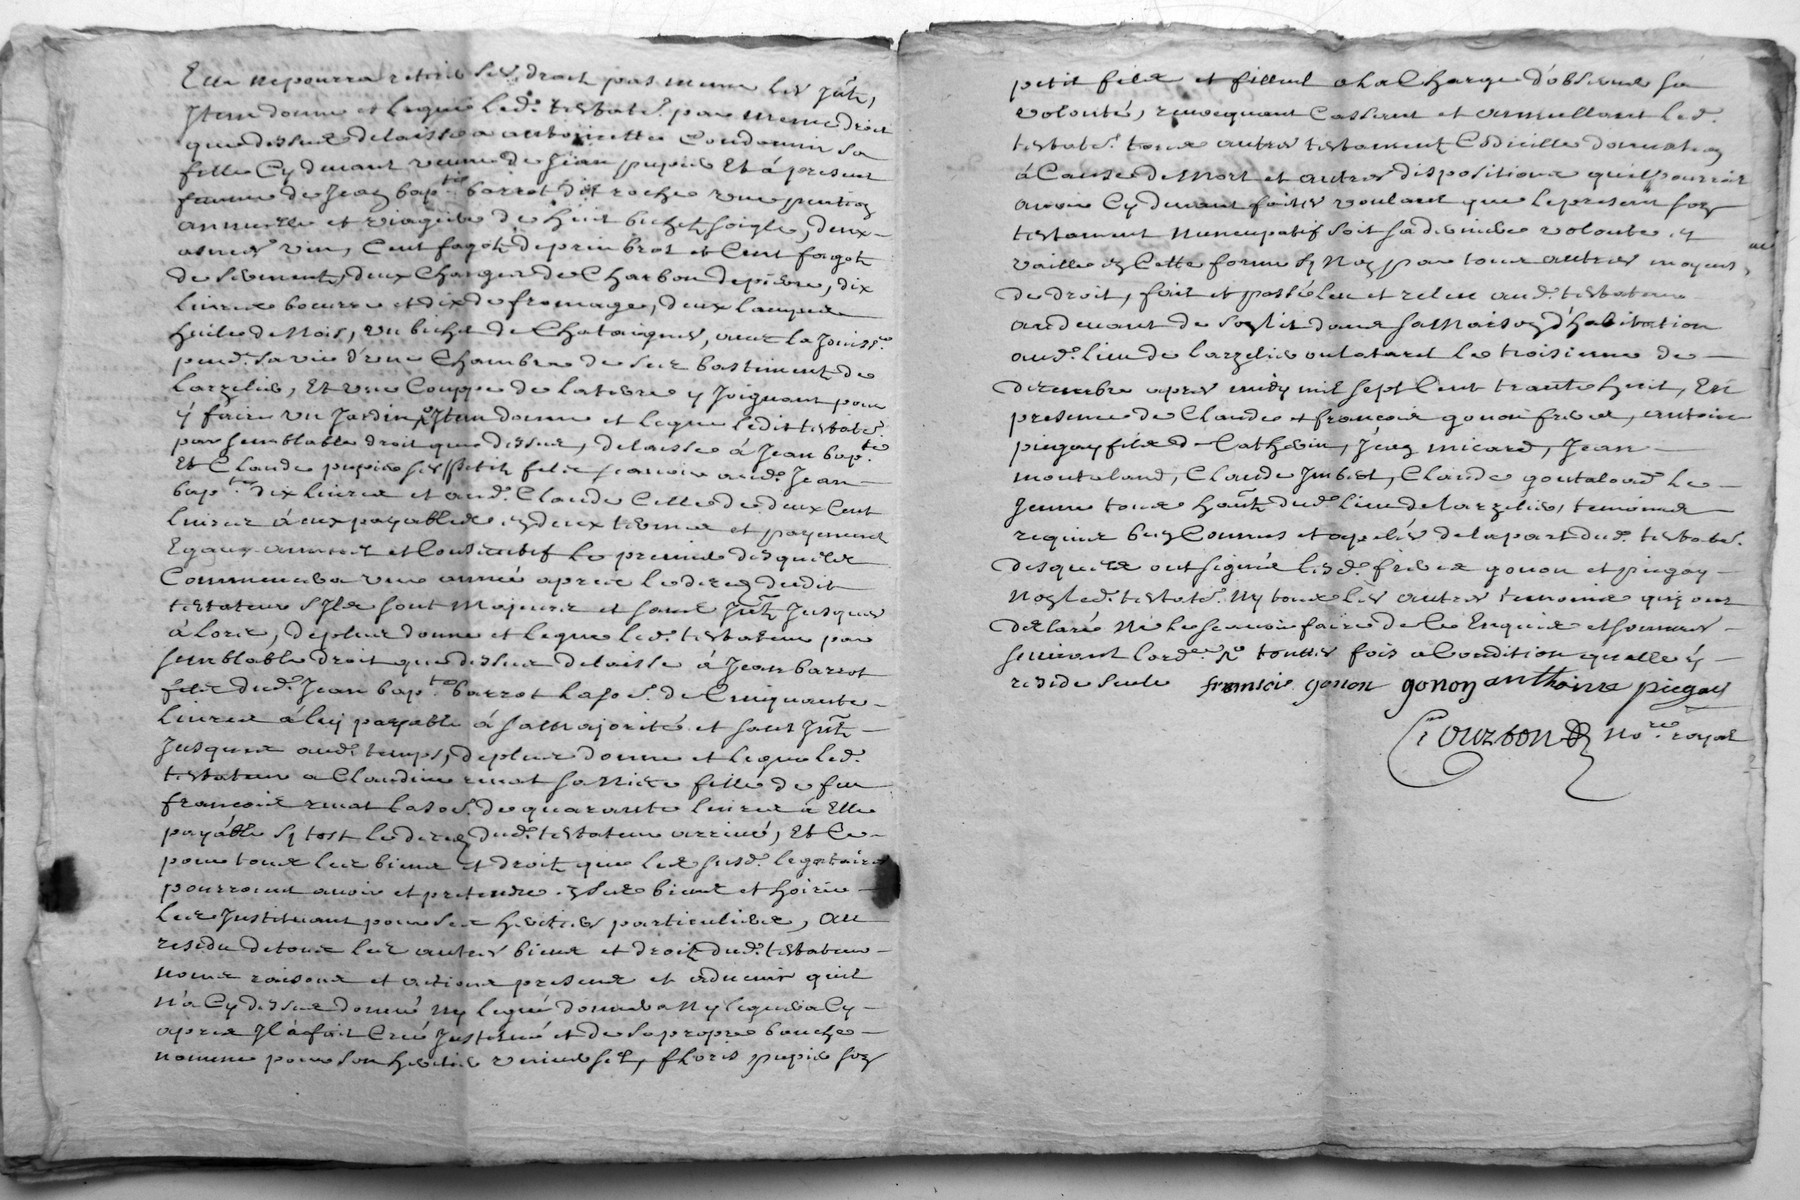 Elle ne pourra retirer ses droit pas meme les Jnts,
Jtem donne et legue led. testatr. par meme droit
que dessus delaisse a anthoinette Coudonnier sa
fille Cy devant veuve de Jean pupier Et à present
femme de Jean bapte barrot dit roche une pention
annuelle et viagere de huit bichets soigle, deux
asnées vin, Cent fagots de prin bros et Cent fagots
de serments, deux Charges de Charbon de pierre, dix
livres beurre et dix de fromage, deux
huile de Nois, un bichet de Chataignes, avec la Jouisse.
pend. sa vie d'une Chambre de ses bastiments de
larzelier, Et une Couppe de la terre y Joignant pour
y faire un Jardin, Jtem donne et legue ledit testatr.
par semblable droit que dessus, delaisse à Jean bapte
Et Claude pupier ses petits fils scavoir aud. Jean
bapte dix livres et aud. Claude Celle de deux Cent
livres à eux payables en deux termes et payements
Egaux annuels et Consecutifs le premier desquels
Commencera une année apres le deces dudit
testateur s'Jls sont Majeurs et sans Jnts Jusques
à lors, de plus donne et legue led. testateur par
semblable droit que dessus delaisse à Jean barrot
fils dud. Jean bapte barrot la so. de Cinquante
livres à luy payable à sa Majorité et sans Jnts
Jusques aud. temps, de plus donne et legue led.
testateur a Claudine rivat sa Niece fille de feu
françois rivat la so. de quarante livres à Elle
payable si tost le deces dud. testateur arrivé, Et Ce
pour tous les biens et droits que les susd. legataires
pourroient avoir et pretendre en ses biens et hoirie
les Jnstituant pour ses heritiers particuliers, au
residu de tous les autres biens et droits dud. testateur
noms raisons et actions presents et advenir qu'il
n'a Cy dessus donné Ny legué donnera Ny leguera Cy
apres Jl à fait Créé Jnstitué et de sa propre bouche
nomme pour son heritier universel, floris pupier son
petit fils et filleul a la Charge d'observer sa
volonté, revocquant Cassant et annullant led.
testatr. tous autres testaments Codicille donnation
à Cause de Mort et autres dispositions qu'il pourroit
avoir Cy devant faites voulant que le present son
testament Nuncupatif soit sa derniere volonté, et
vaille en Cette forme si Non par tous autres moyens
de droit, fait et passé leu et releu aud. testateur
au devant de son lit dans sa Maison d'habitation
aud. lieu de larzelier le troisieme de
decembre apres midy mil sept Cent trante huit, En
presence de Claude et françois gonon freres, antoine
piegay fils de Catherin, Jean micard, Jean
montaland, Claude Jmbert, Claude goutaloud le
Jeune tous hants dud. lieu de larzelier, temoins
requis bien Connus et apelés de la part dud. testatr.
desquels ont signé lesd. freres gonon et piegay
Non led. testatr. Ny tous les autres temoins qui ont
declaré Ne le scavoir faire de Ce Enquis et sommés
suivant lorde. toutes fois a Condition qu'elle y
reside seule francois gonon gonon anthoine piegay
Courbon nore royal